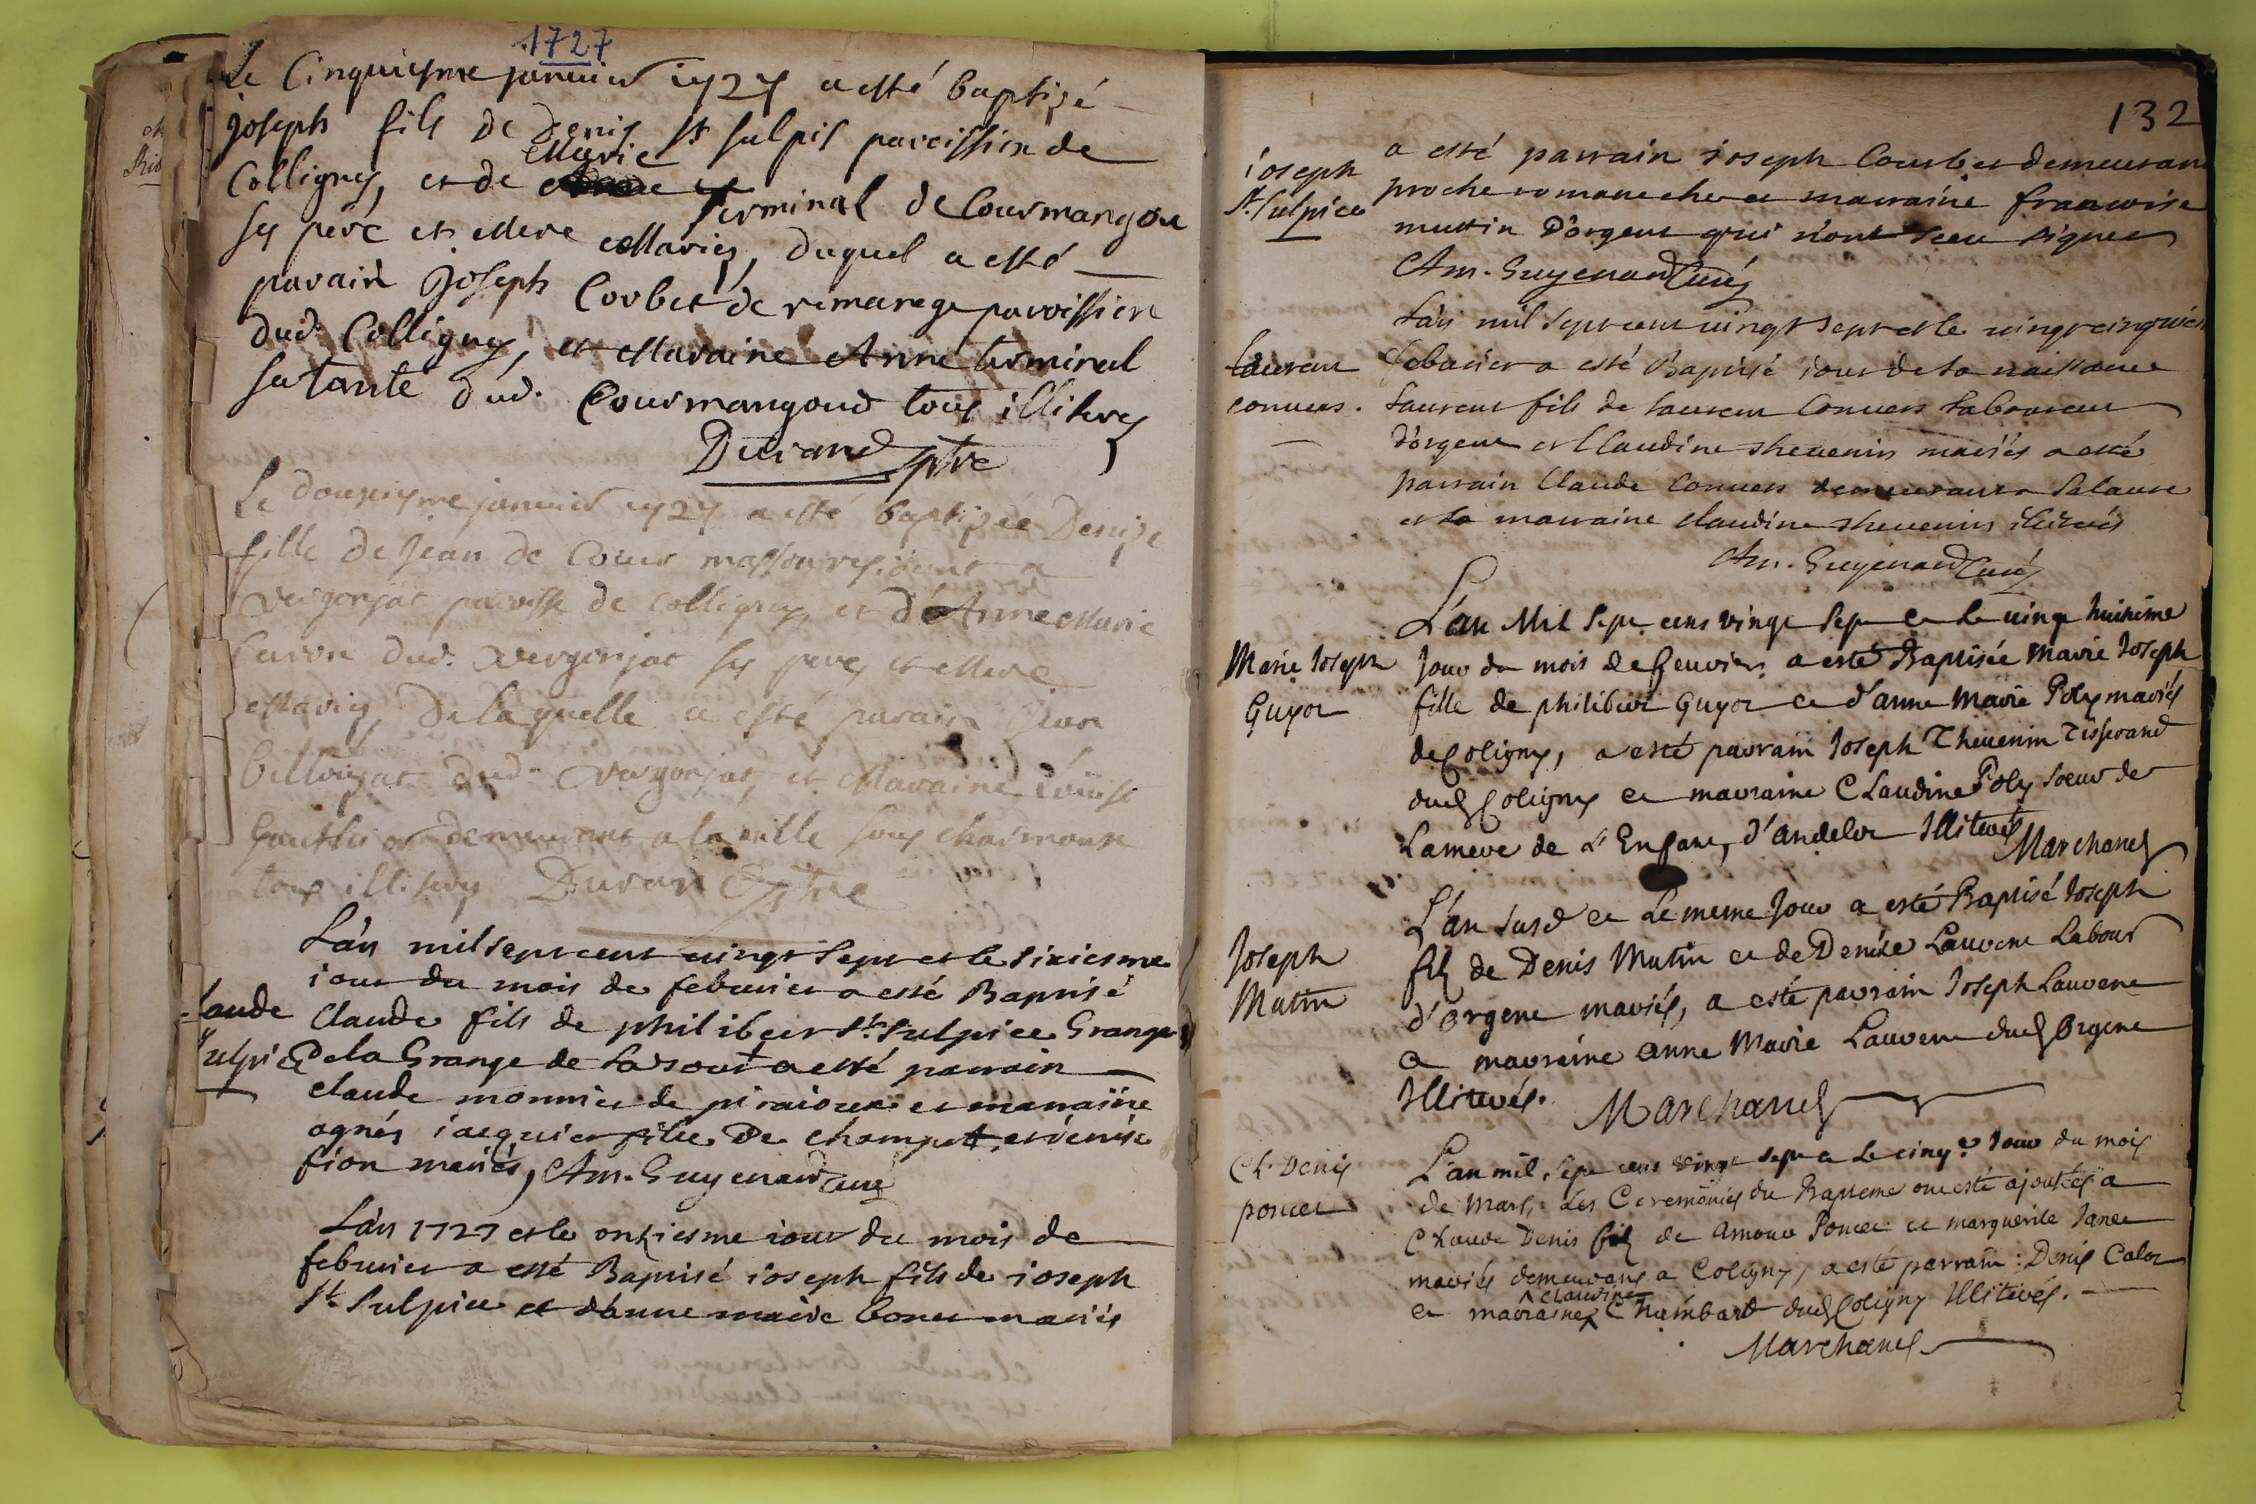 1727
Le Cinquiesme janvier 1727 a esté baptizé
joseph fils de Denis St sulpis paroissien de
Colligny, et de Marie
terminal de Courmangou
ses pere et Mere Mariés, duquel a esté
parain Joseph Corbet de remarege paroissien
dud. Colligny, et Maraine Anne terminal
sa tante dud. Courmangoud tous illiteres
Durand ptre
Le douziesme janvier 1727 a esté baptizée Denize
fille de Jean de Cour masson residant a
vergonjat paroisse de Colligny, et d'Anne Marie
dud. vergonjat ses peres et Mere
Mariés, De laquelle a esté parain Jean
dud. vergonjat, et Maraine Louise
demeurant a la ville sous charmoux
tous illiteres Durand ptre
L'an mil sept cent vingt sept et le sixiesme
iour du mois de febvrier a esté Baptisé
laude Claude fils de philibert St. Sulpice Granger
ulpice de la Grange de la a esté parrain
claude monnier de piraioux et marraine
agnés iacquier fille De champet, et denise
fion mariés, Am. Guyenard curé
L'an 1727 et le onziesme iour du mois de
febvrier a esté Baptisé ioseph fils de ioseph
St. Sulpice et d'anne marie bonet mariés
132
ioseph
St Sulpice
a esté parrain ioseph Courbet demeurant
proche romanecher et marraine francoise
muttin d'orgent qui n'ont sceu signer
Am. Guyenard Curé
Laurent
convers.
L'an mil sept cent vingt sept et le vingt cinquies
febvrier a esté Baptisé iour de sa naissance
Laurent fils de Laurent Convers Laboureur
d'orgent et Claudine thevenin mariés a esté
parrain Claude Convers demeurant a
et la marraine claudine thevenin
Am. Guyenard Curé
Marie Joseph
Guyot
L'an Mil sept cens vingt sept et le vingt huitième
Jour du mois de fevrier a esté Baptisée Marie Joseph
fille de philibert Guyot et d'anne Marie Poly mariés
de Coligny, a esté parrain Joseph Thevenin Tisserand
dud Coligny et marraine Claudine Poly soeur de
La mere de L'Enfant, d'andelot Illiterés Marchand
Joseph
Mutin
L'an susd et Le meme Jour a esté Baptisé Joseph
fils de Denis Mutin et de Denise Laurent Labour
d'orgent mariés, a esté parrain Joseph Laurent
et marraine anne Marie Laurent dud Orgent
Illiterés. Marchand
Cl. Denis
poncet
L'an mil sept cens vingt sept et Le cinq.e Jour du mois
de Mars, Les Ceremonies du Bapteme ont esté ajoutées a
Claude Denis fils de Amour Poncet et marguerite Janet
mariés demeurans a Coligny, a esté parrain : Denis Calot
claudine
et marraine Chambard dud Coligny Illiterés.
Marchand